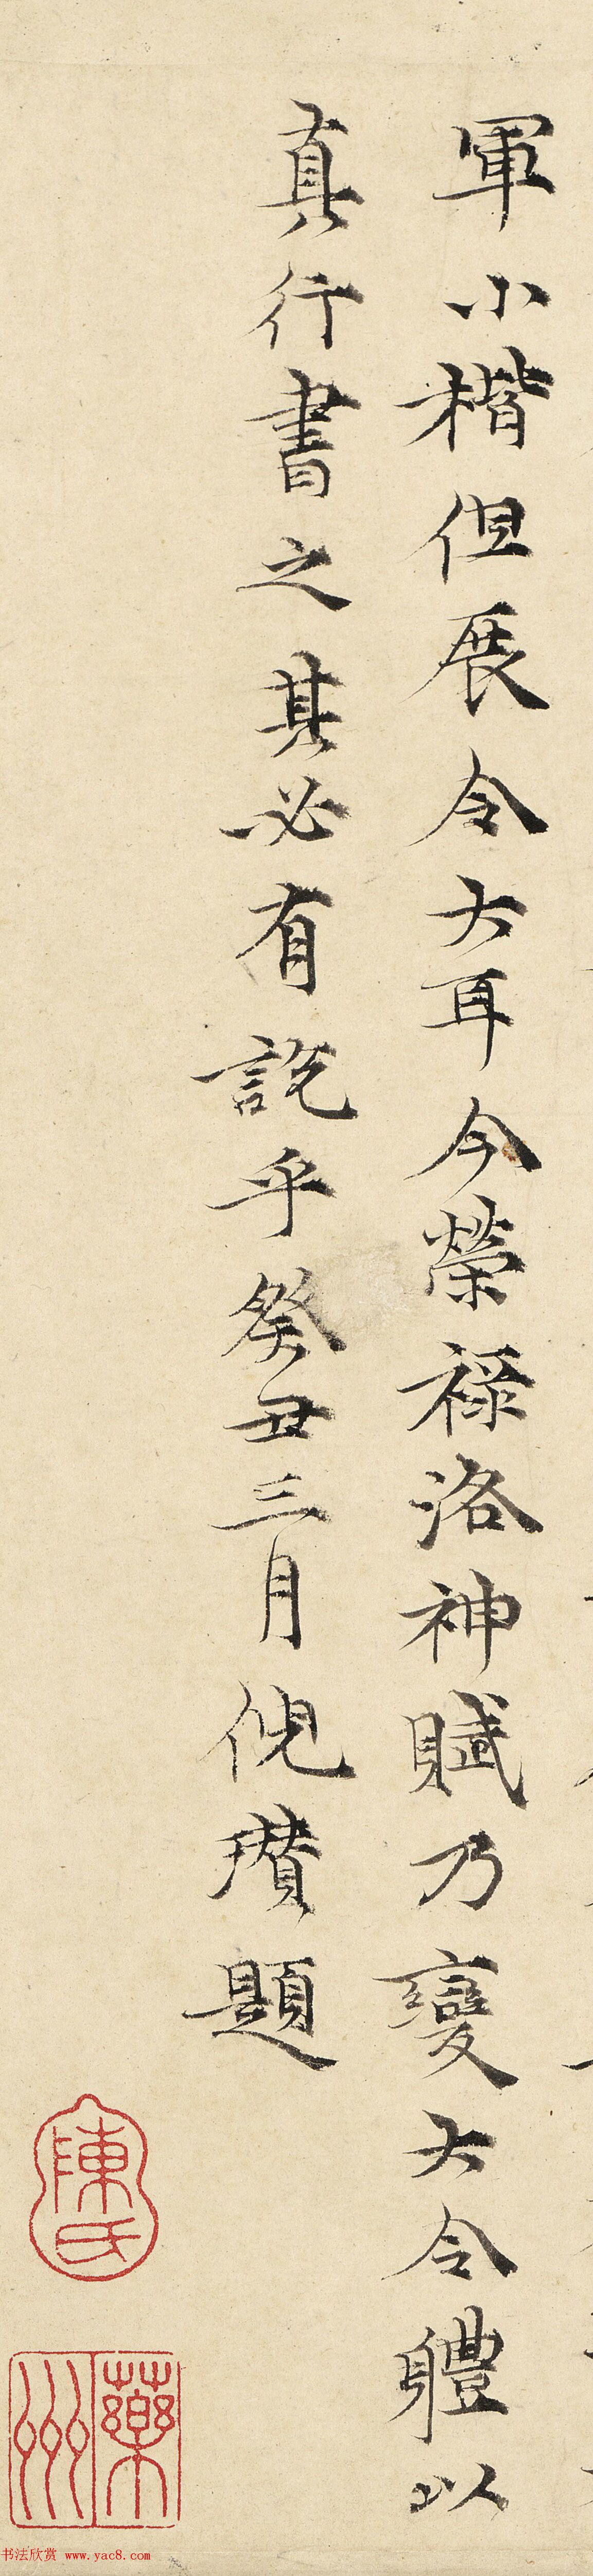 軍小楷但展令大耳今榮祿洛神賦乃變大令體以
真行書之其必有説乎癸丑三月倪瓚題
陳氏
藥洲
书法欣赏 www.yac8.com